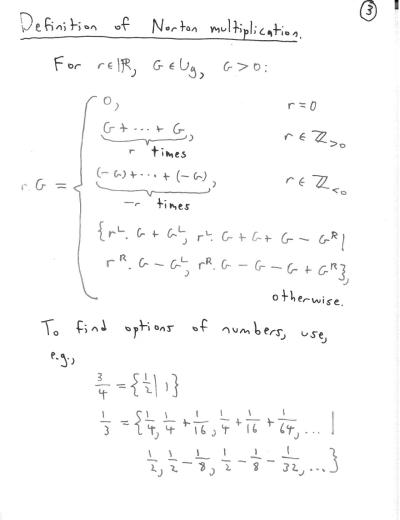 ③
Definition of Norton multiplication.
For r∈ℝ, G∈Ug, G>0:
0, r=0
G+⋯+G, r∈ℤ>0
r times
r.G = (-G)+⋯+(-G), r∈ℤ<0
-r times
{rᴸ.G+Gᴸ, rᴸ.G+G+G-Gᴿ|
rᴿ.G-Gᴸ, rᴿ.G-G-G+Gᴿ},
otherwise.
To find options of numbers, use,
e.g.,
3/4 = {1/2 | 1}
1/3 = {1/4, 1/4 + 1/16, 1/4 + 1/16 + 1/64, ... |
1/2, 1/2 - 1/8, 1/2 - 1/8 - 1/32, ...}